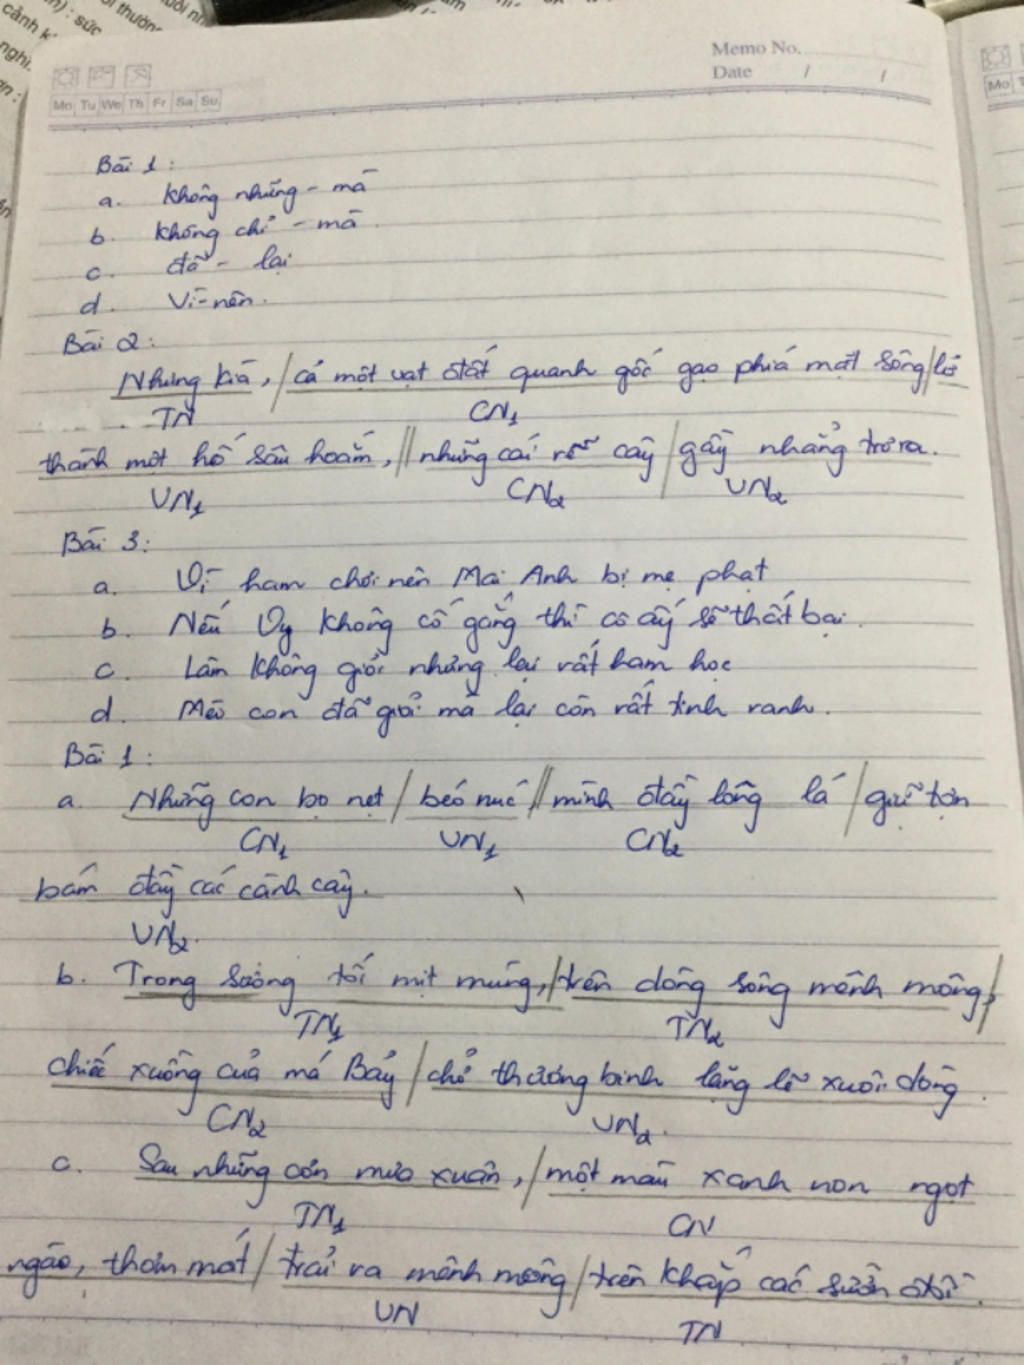 cảnh
sức
nghi.
Memo No.
Date / /
Mo Tu We Th Fr Sa Su
Mo
Bài 1:
a. Không những - mà
b. không chỉ - mà.
c. đã - lại
d. Vì - nên.
Bài 2:
Nhưng kìa, / cả một vạt đất quanh gốc gạo phía mặt sông / lở
TN CN1
thành một hố sâu hoắm, // những cái rễ cây / gầy nhẳng trơ ra.
VN1 CN2 VN2
Bài 3:
a. Vì ham chơi nên Mai Anh bị mẹ phạt
b. Nếu Vy không cố gắng thì cô ấy sẽ thất bại.
c. Lâm không giỏi nhưng lại rất ham học
d. Mèo con đã giỏi mà lại còn rất tinh ranh.
Bài 1:
a. Những con bọ nẹt / béo núc // mình đầy lông lá / giữ tợn
CN1 VN1 CN2
bám đầy các cành cây.
VN2.
b. Trong sương tối mịt mùng, / trên dòng sông mênh mông, /
TN1 TN2
chiếc xuồng của má Bảy / chở thương binh lặng lẽ xuôi dòng.
CN2 VN2.
c. Sau những cơn mưa xuân, / một màu xanh non ngọt
TN1 CN
ngào, thơm mát / trải ra mênh mông / trên khắp các sườn đồi.
VN TN